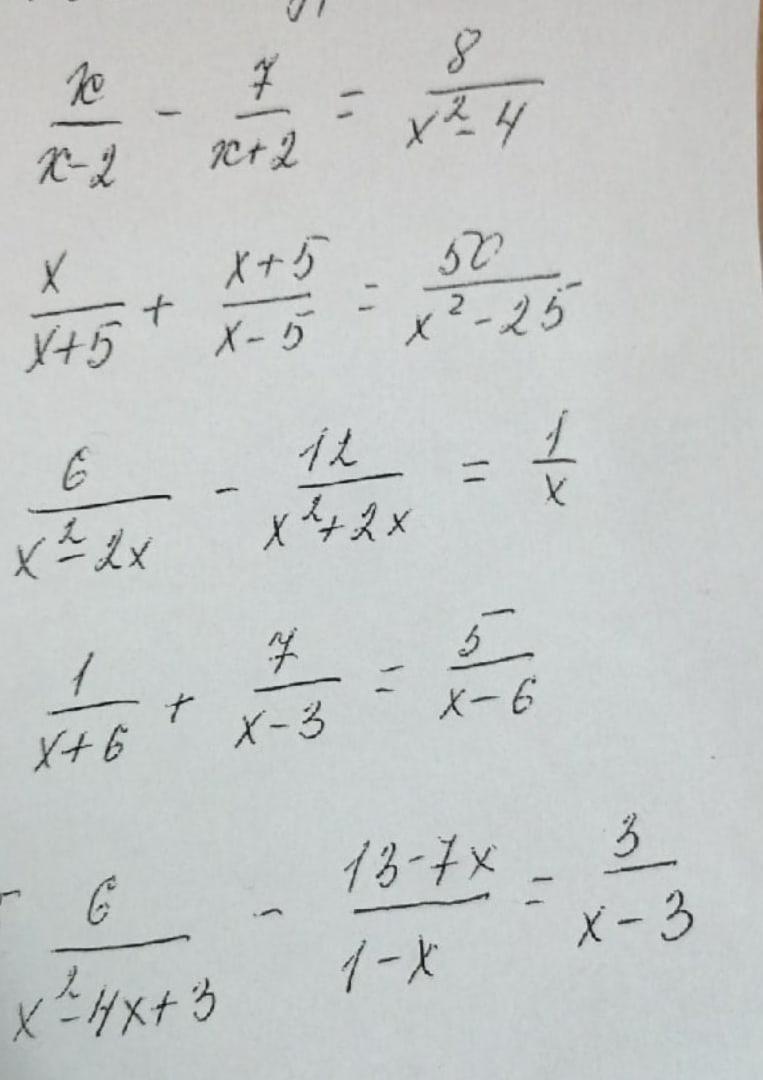 x/(x-2) - 7/(x+2) = 8/(x²-4)
x/(x+5) + (x+5)/(x-5) = 50/(x²-25)
6/(x²-2x) - 12/(x²+2x) = 1/x
1/(x+6) + 7/(x-3) = 5/(x-6)
6/(x²-4x+3) - (13-7x)/(1-x) = 3/(x-3)